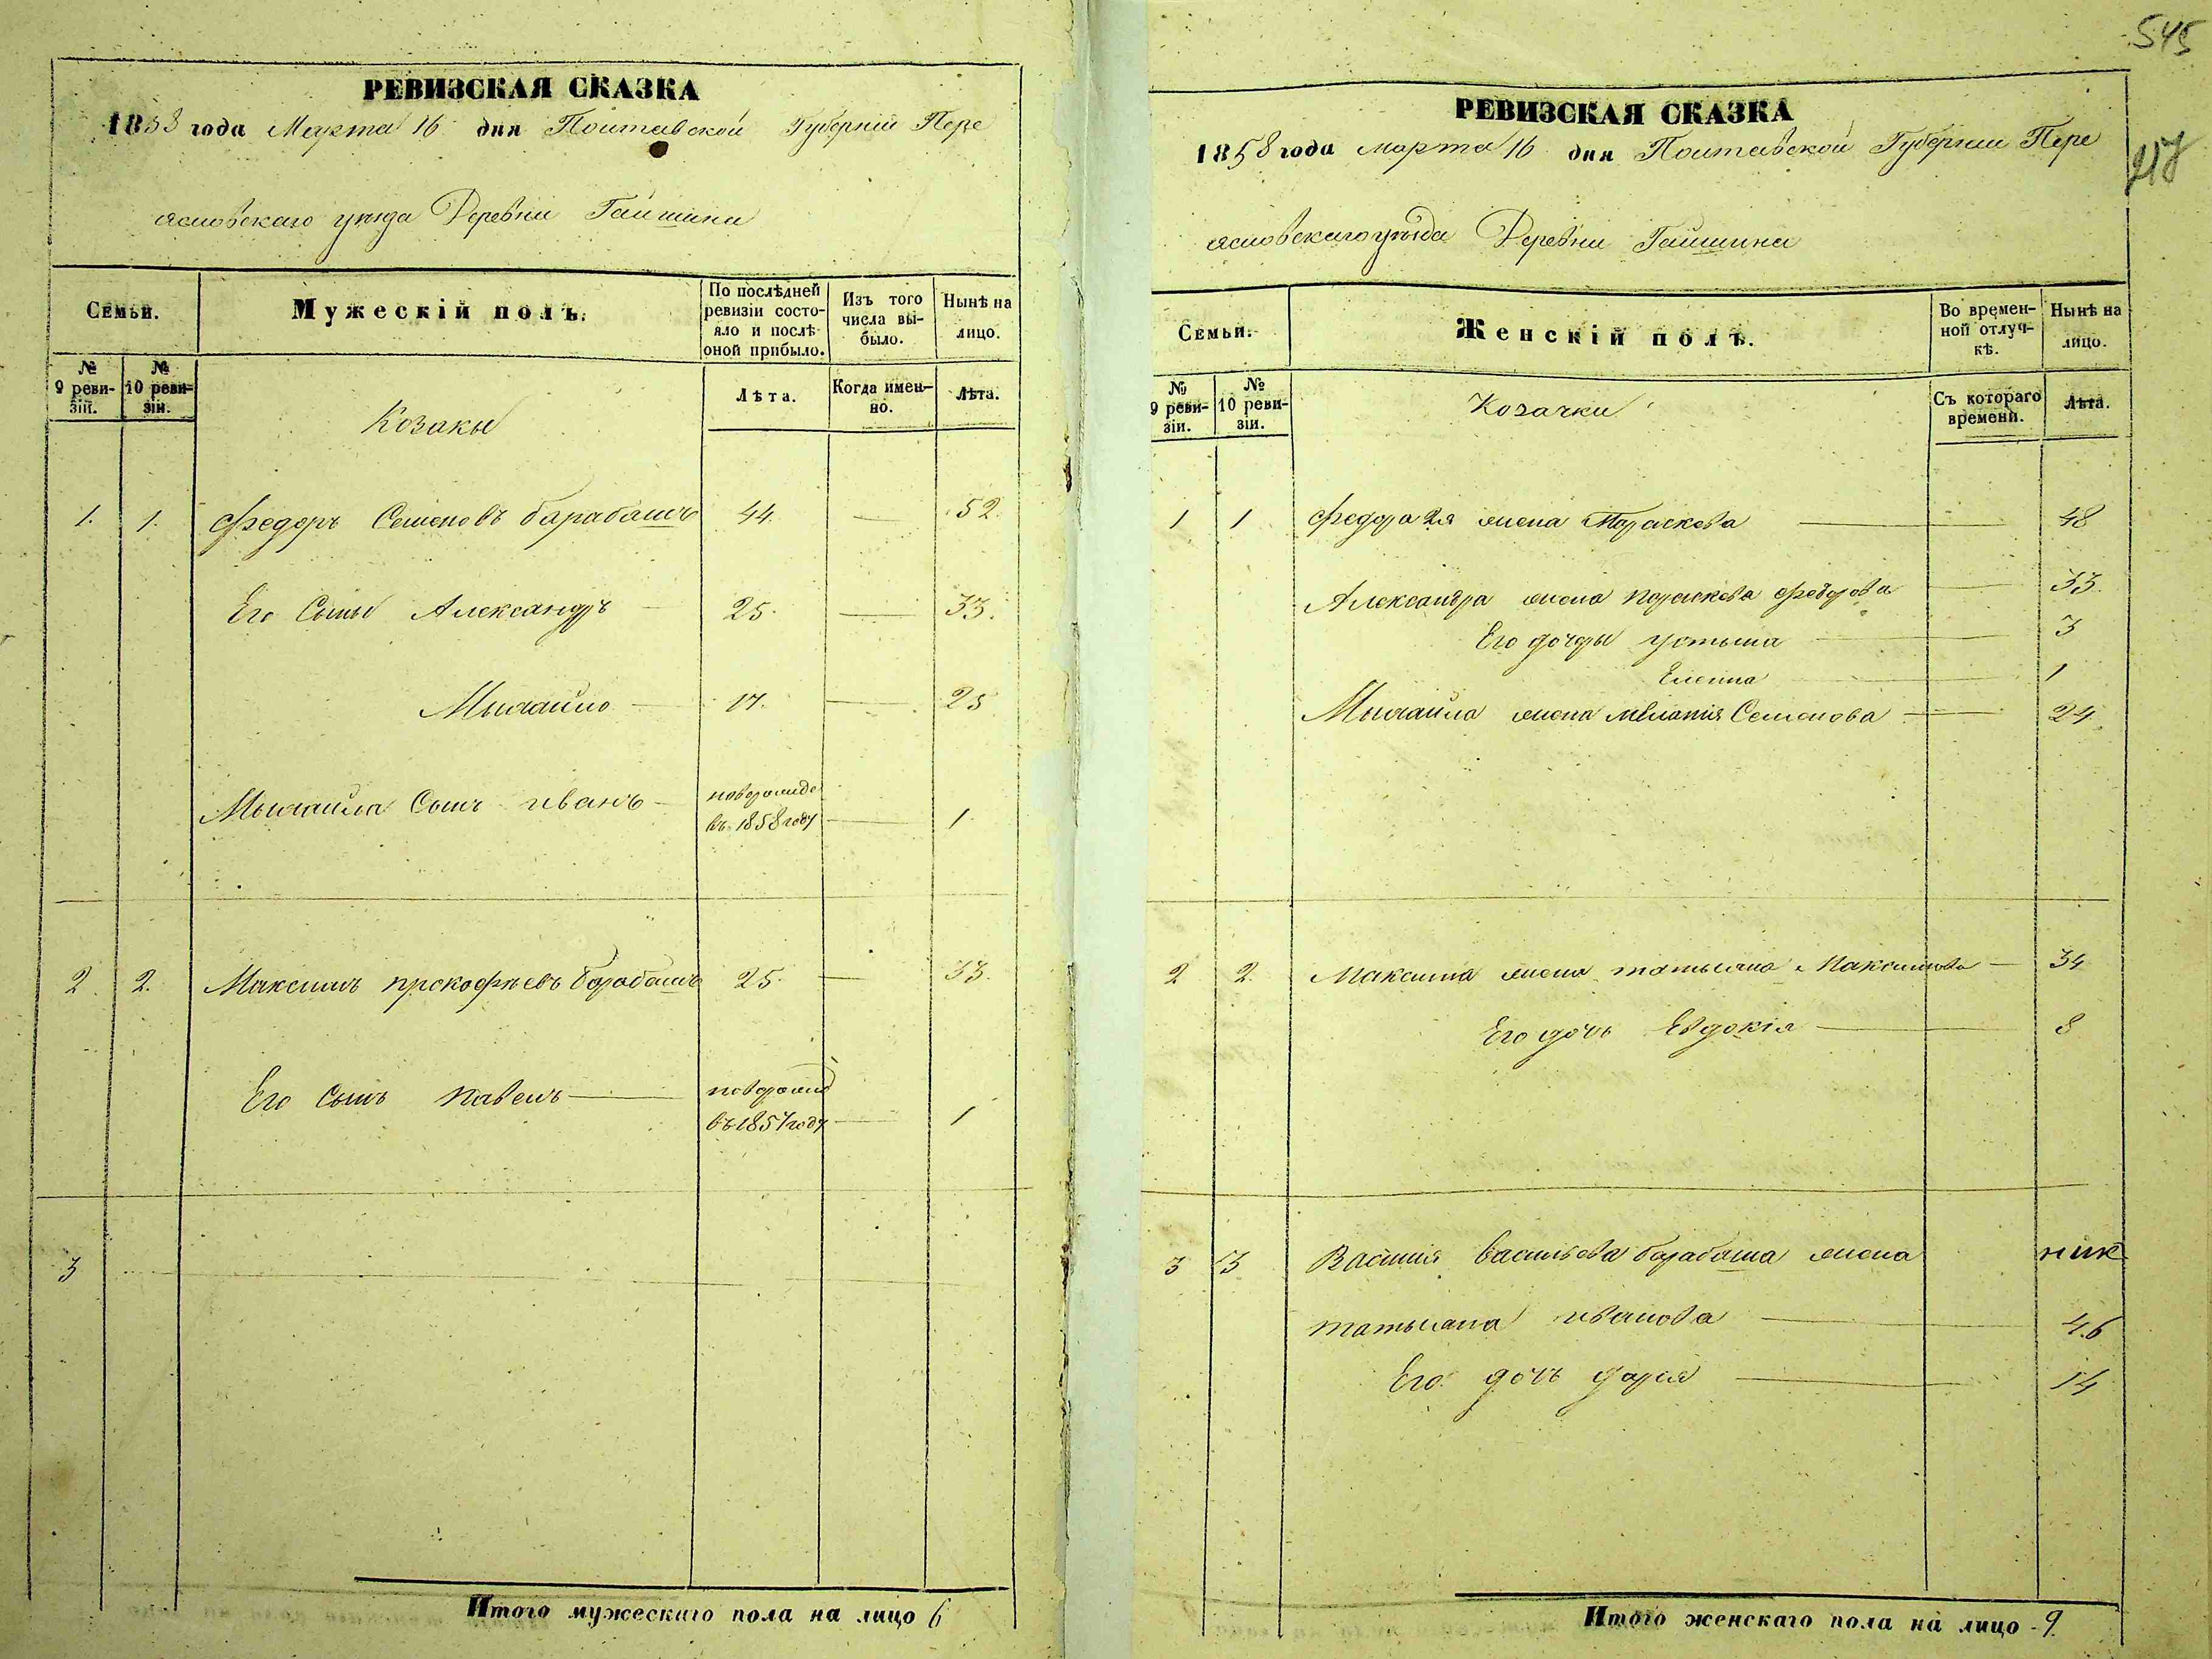 545
217
РЕВИЗСКАЯ СКАЗКА
1858 года Марта 16 дня Полтавской Губерніи Пере
яславскаго уезда Деревни Гайшина
Семьи.
Мужескій полъ.
По послѣдней ревизіи состояло и послѣ оной прибыло.
Изъ того числа выбыло.
Нынѣ на лицо.
№ 9 ревизіи.
№ 10 ревизіи.
Лѣта.
Когда именно.
Лѣта.
Козаки
1. 1. Федоръ Семеновъ барабашъ 44. — 52.
Его Сыны Александръ 25. — 33.
Михайло — 17. — 25
Михайла Сынъ иванъ — новорожде
въ 1858 году — 1
2. 2. Максимъ прокофьевъ барабашъ 25. — 33.
Его Сынъ павелъ — новорожд
въ 1857 году — 1
3
Итого мужескаго пола на лицо 6
РЕВИЗСКАЯ СКАЗКА
1858 года марта 16 дня Полтавской Губерніи Пере
яславскаго уезда Деревни Гайшина
Семьи.
Женскій полъ.
Во временной отлучкѣ.
Нынѣ на лицо.
№ 9 ревизіи.
№ 10 ревизіи.
Съ котораго времени.
Лѣта.
Козачки
1 1 Федора 2я жена Параскева — 48
Александра жена параскева федорова — 33.
Его дочери устына — 3
Елена — 1
Михайла жена меланія Семенова — 24.
2 2. Максима жена татьяна Максимова — 34
Его дочь Евдокія — 8
3 3 Василія васильева барабаша жена
татьяна иванова — 46
Его дочь дарія — 14
Итого женскаго пола на лицо 9.